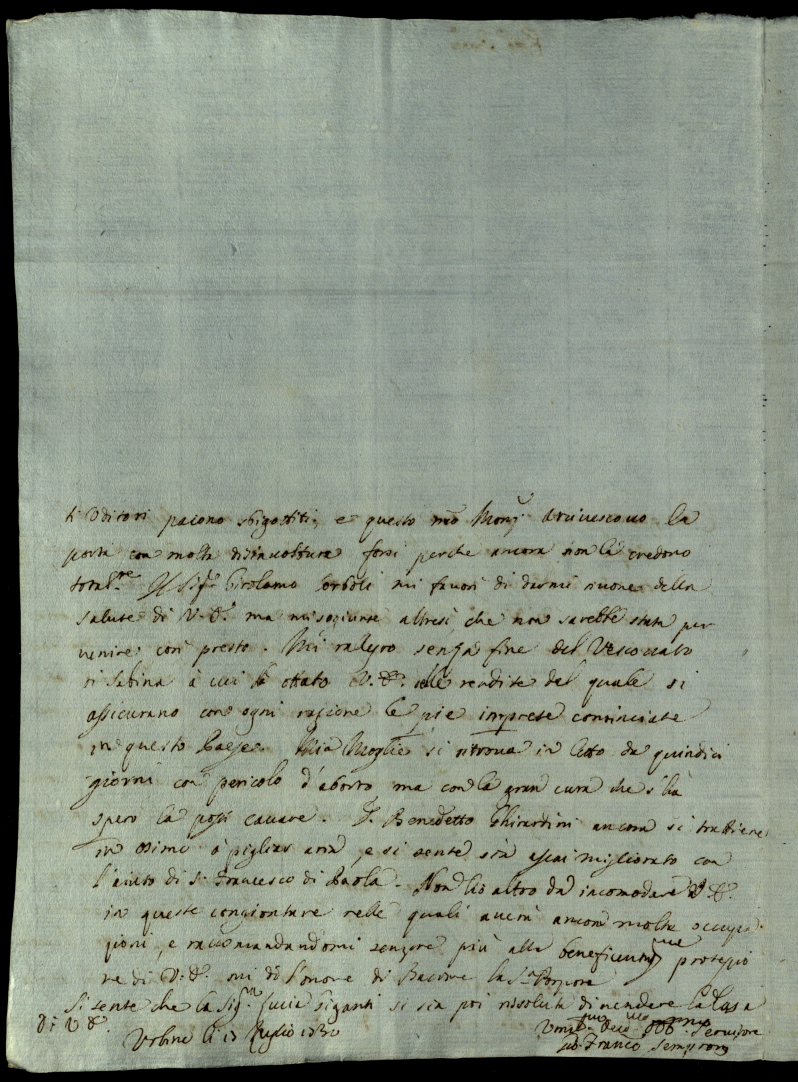 ti Uditori paiono sbigottiti, e questo nro Monsr Arcivescovo la
porta con molta disinvoltura forsi perche ancora non la credono
Il Sigr Girolamo mi favorì di darmi nuove della
salute di V. E. ma mi sogiunse altresì che non sarebbe stata per
venire così presto. Mi ralegro senza fine del Vescovato
di Sabina à cui hà ottato V. E. colle rendite del quale si
assicurano con ogni ragione le pie imprese cominciate
in questo Paese. Mia Moglie si ritrova in letto da quindici
giorni con pericolo d'aborto ma con la gran cura che s'hà
spero la possi cavare. Benedetto Ghirardini ancora si trattiene
in Osimo à pigliar aria, e si sente sia assai migliorato con
l'aiuto di S. Francesco di Paola. Non hò altro da incomodare V. E.
in queste congionture nelle quali averà ancora molte occupa
zioni, e raccomandandomi sempre più alla beneficentma protezio
ne di V. E. mi dò l'onore di Baciare la Sra Porpora
Si sente che la Sigra Lucia Giganti si sia poi risoluta di vendere la Casa
di V. E.
Urbino li 13 Luglio 1730
Umo Devo Obbmo Servitore
Franco Semproni